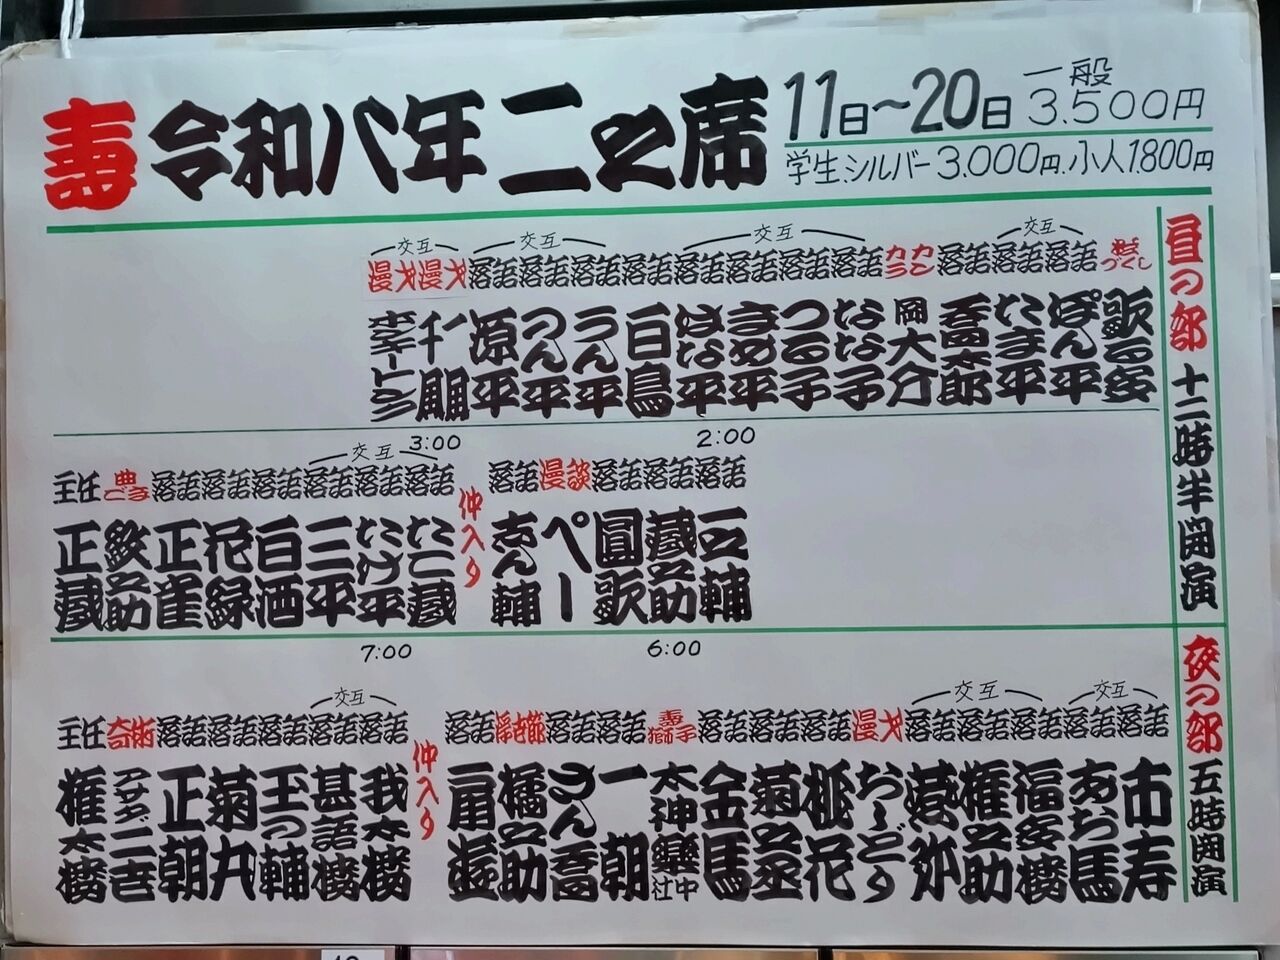 壽 令和八年 二之席 11日〜20日 一般 3,500円
学生.シルバー3,000円.小人1,800円
昼の部 十二時半開演
交互 交互 交互 交互
漫才 漫才 落語 落語 落語 落語 落語 落語 落語 落語 カンカラ 落語 落語 落語 づくし
歌る多
ぽん平
たま平
吾高太郎
岡大介
なな子
つる子
まめ平
はな平
白鳥
うん平
つん平
源平
一朋
千
2:00
3:00
交互
落語 落語 落語 漫談 落語
三之輔
蔵之助
圓歌
ぺー
志ん輔
仲入り
落語 落語 落語 落語 落語 落語 主任
たこ蔵
たけ平
三平
白酒
花緑
正雀
鉄之助
正蔵
夜の部 五時開演
6:00
7:00
交互 交互 交互
落語 落語 落語 落語 落語 漫才 落語 落語 落語 壽獅子 落語 落語 浮世節 落語
市寿
あお馬
福多楼
権之助
龍弥
おしどり
桃花
菊之丞
金馬
太神樂 社中
一朝
さん喬
橘之助
扇遊
仲入り
落語 落語 落語 落語 落語 奇術 主任
我太楼
甚語楼
玉の輔
菊丸
正朝
アサダ二世
権太楼